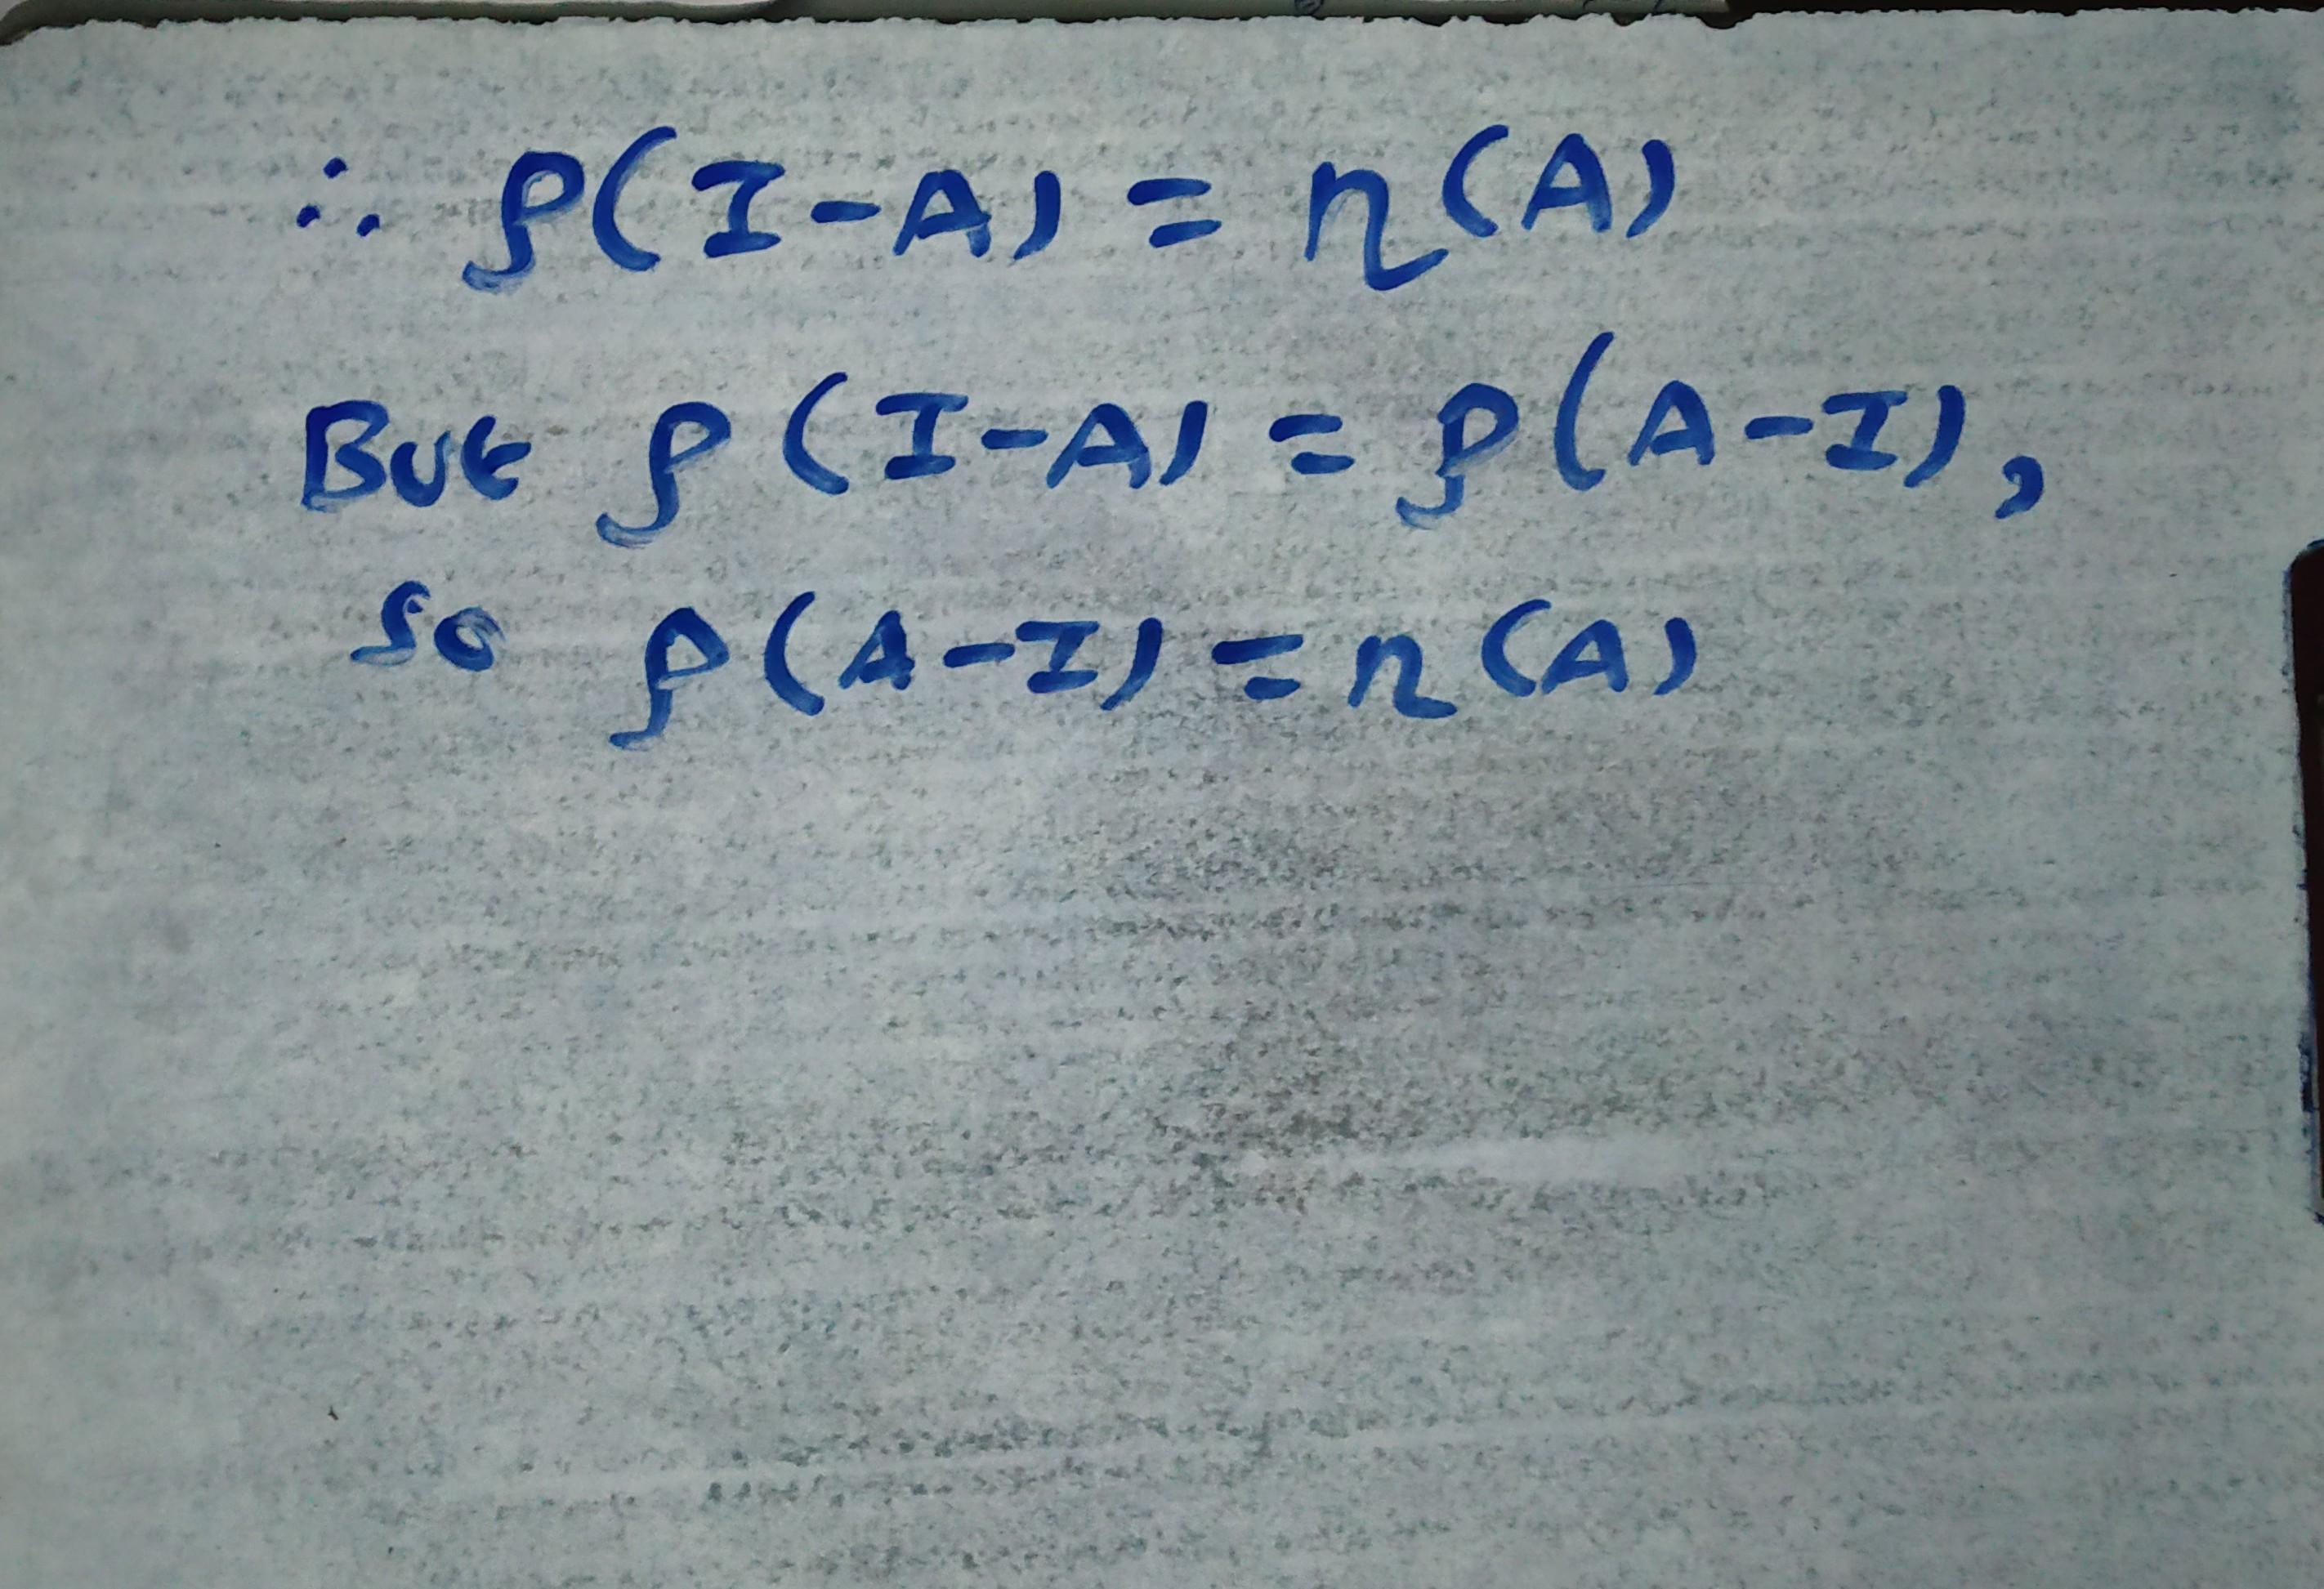 ∴ ρ(I-A) = η(A)
But ρ(I-A) = ρ(A-I),
so ρ(A-I) = η(A)